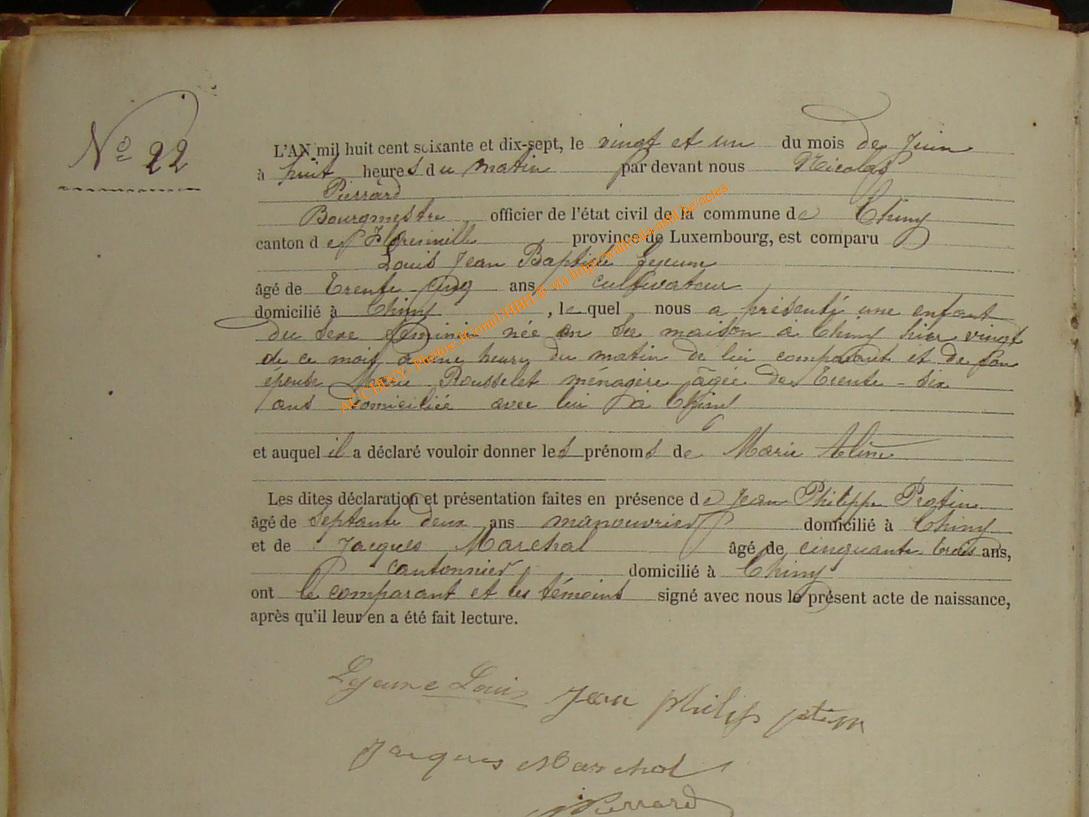 No 22
L'AN mil huit cent soixante et dix-sept, le vingt et un du mois de Juin
à huit heures du matin par devant nous Nicolas
Pierrard
Bourgmestre officier de l'état civil de la commune de Chiny
canton de Florenville province de Luxembourg, est comparu
Louis Jean Baptiste Lejeune
âgé de Trente-cinq ans cultivateur
domicilié à Chiny, lequel nous a présenté une enfant
du sexe féminin née en sa maison à Chiny hier vingt
de ce mois à une heure du matin de lui comparant et de son
épouse Marie Rousselet ménagère âgée de Trente-six
ans domiciliée avec lui à Chiny
et auquel il a déclaré vouloir donner les prénoms de Marie Aline
Les dites déclaration et présentation faites en présence de Jean Philippe Protin
âgé de septante deux ans manouvrier domicilié à Chiny
et de Jacques Marechal âgé de cinquante trois ans,
cantonnier domicilié à Chiny
ont le comparant et les témoins signé avec nous le présent acte de naissance,
après qu'il leur en a été fait lecture.
Lejeune Louis Jean philip
Jacques Marechal
Pierrard